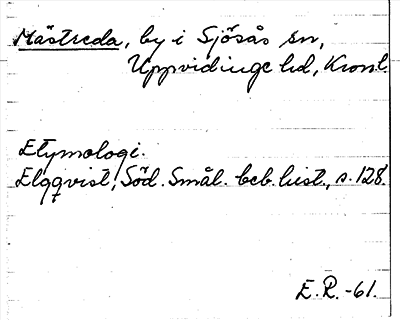 Mästreda, by i Sjösås sn,
Uppvidinge hd, Kronl.
Etymologi.
Elgqvist, Söd. Smål. beb. hist., s. 128.
E. R. -61.